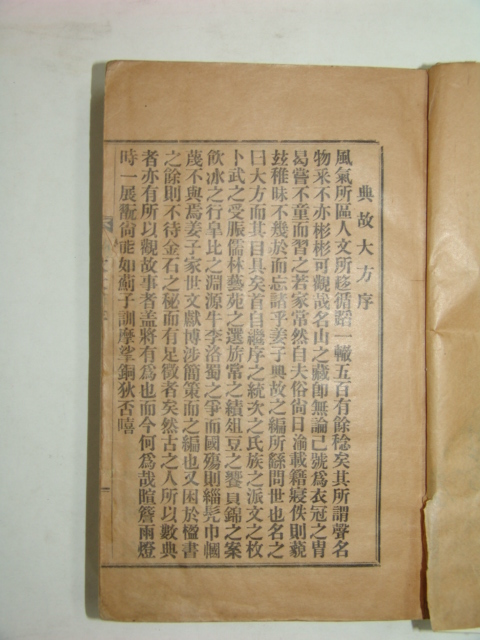 典故大方序
風氣所區人文所移循蹈一轍五百有餘稔矣其所謂聲名
物采不亦彬彬可觀哉名山之藏卽無論已號爲衣冠之冑
曷嘗不童而習之若家常然自夫俗尙日渝載籍寖佚則藐
玆稚昧不幾於而忘諸乎姜子典故之編所繇問世也名之
曰大方而其目具矣首自繼序之統次之氏族之派文之枚
卜武之受脤儒林藝苑之選旂常之績俎豆之饗貝錦之案
飮冰之行皐比之淵源牛李洛蜀之爭而國殤則緇髡巾幗
蔑不與焉姜子家世文獻博涉簡策而之編也又困於楹書
之餘則不待金石之秘而有足徵者矣然古之人所以數典
者亦有所以觀故事者盖將有爲也而今何爲哉暄簷雨燈
時一展翫尙能如薊子訓摩挲銅狄否嘻